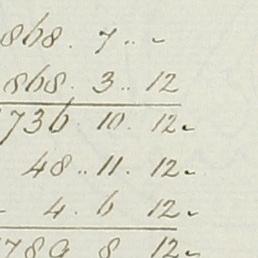 868. 7.. -
868. 3.. 12
1736. 10. 12.
48.. 11. 12.
- 4. 6 12
1789 8 12